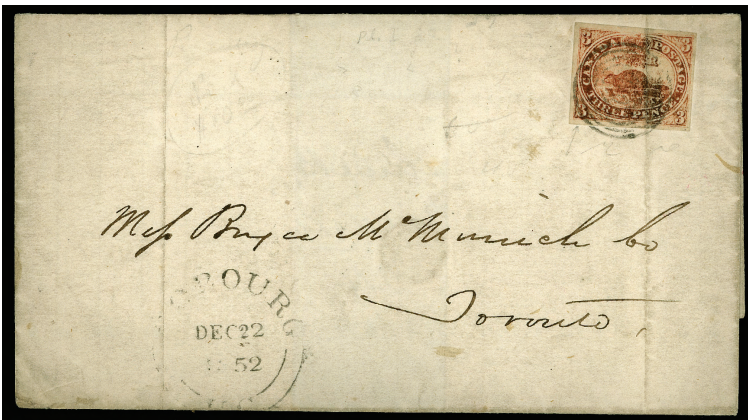 3 CANADA POSTAGE 3
3 THREE PENCE 3
Mess Bryce McMurrich Co
Toronto
OBOURG
DEC 22
1852